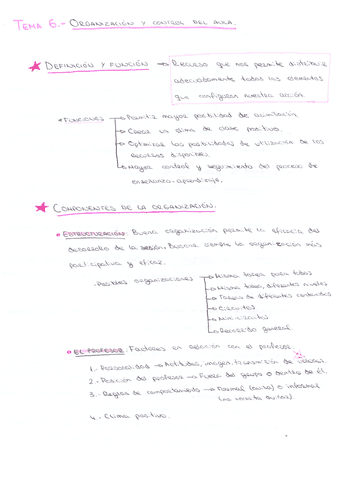 TEMA 6.- ORGANIZACIÓN Y CONTROL DEL AULA.
★ DEFINICIÓN Y FUNCIÓN → Recurso que nos permite distribuir
adecuadamente todos los elementos
que configuran nuestra acción.
• FUNCIONES → Permitir mayor posibilidad de
→ Crear un clima de clase positivo.
→ Optimizar las posibilidades de utilización de los
recursos disponibles.
→ Mayor control y seguimiento del proceso de
enseñanza-aprendizaje.
★ COMPONENTES DE LA ORGANIZACIÓN.
• ESTRUCTURACIÓN: Buena organización permite la eficacia del
desarrollo de la sesión. Buscar siempre la organización más
participativa y eficaz.
- Posibles organizaciones → Misma tarea para todos
→ Misma tarea, diferentes niveles
→ Tareas de diferentes contenidos
→ Circuitos
→ Mini-circuitos
→ Recorrido general.
• EL PROFESOR: Factores en relación con el profesor:
1.- Personalidad → Actitudes, imagen, transmisión de valores.
2.- Posición del profesor → Fuera del grupo o dentro de él.
3.- Reglas de comportamiento → Formal (aula) o informal
4.- Clima positivo.